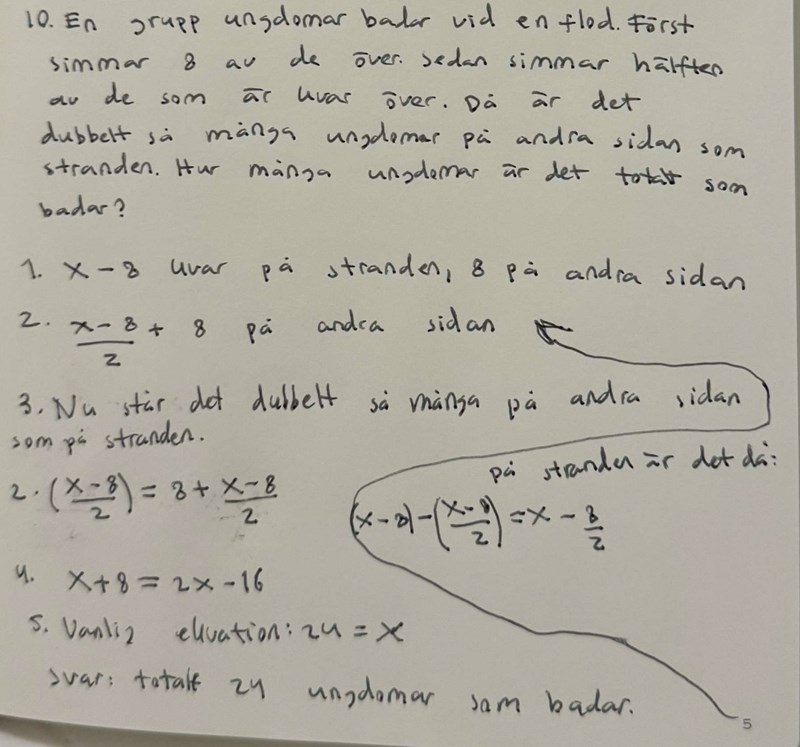 10. En grupp ungdomar badar vid en flod. Först
simmar 8 av de över. Sedan simmar hälften
av de som är kvar över. Då är det
dubbelt så många ungdomar på andra sidan som
stranden. Hur många ungdomar är det totalt som
badar?
1. x-8 kvar på stranden, 8 på andra sidan
2. (x-8)/2 + 8 på andra sidan
3. Nu står det dubbelt så många på andra sidan
som på stranden.
på stranden är det då:
2 · ((x-8)/2) = 8 + (x-8)/2
(x-8) - ((x-8)/2) = x - 8/2
4. x+8 = 2x-16
5. Vanlig ekvation: 24 = x
Svar: totalt 24 ungdomar som badar.
5